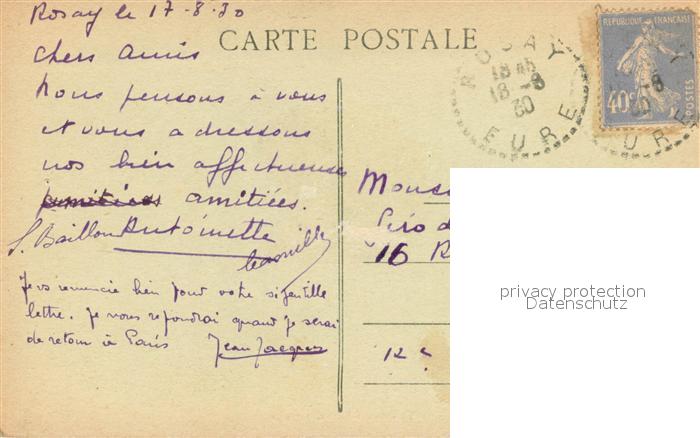 Rosay le 17-8-30
CARTE POSTALE
chers amis
Nous pensons à vous
et vous adressons
nos bien affectueuses
amitiées.
S. Baillon Antoinette
Je vs remercie bien pour votre si gentille
lettre. Je vous repondrai quand je serai
de retour à Paris Jean Jacques
ROSAY
18 45
18 -8
30
EURE
RÉPUBLIQUE FRANÇAISE
40c
POSTES
-8
30
URE
Mons
16 R
12e
privacy protection
Datenschutz